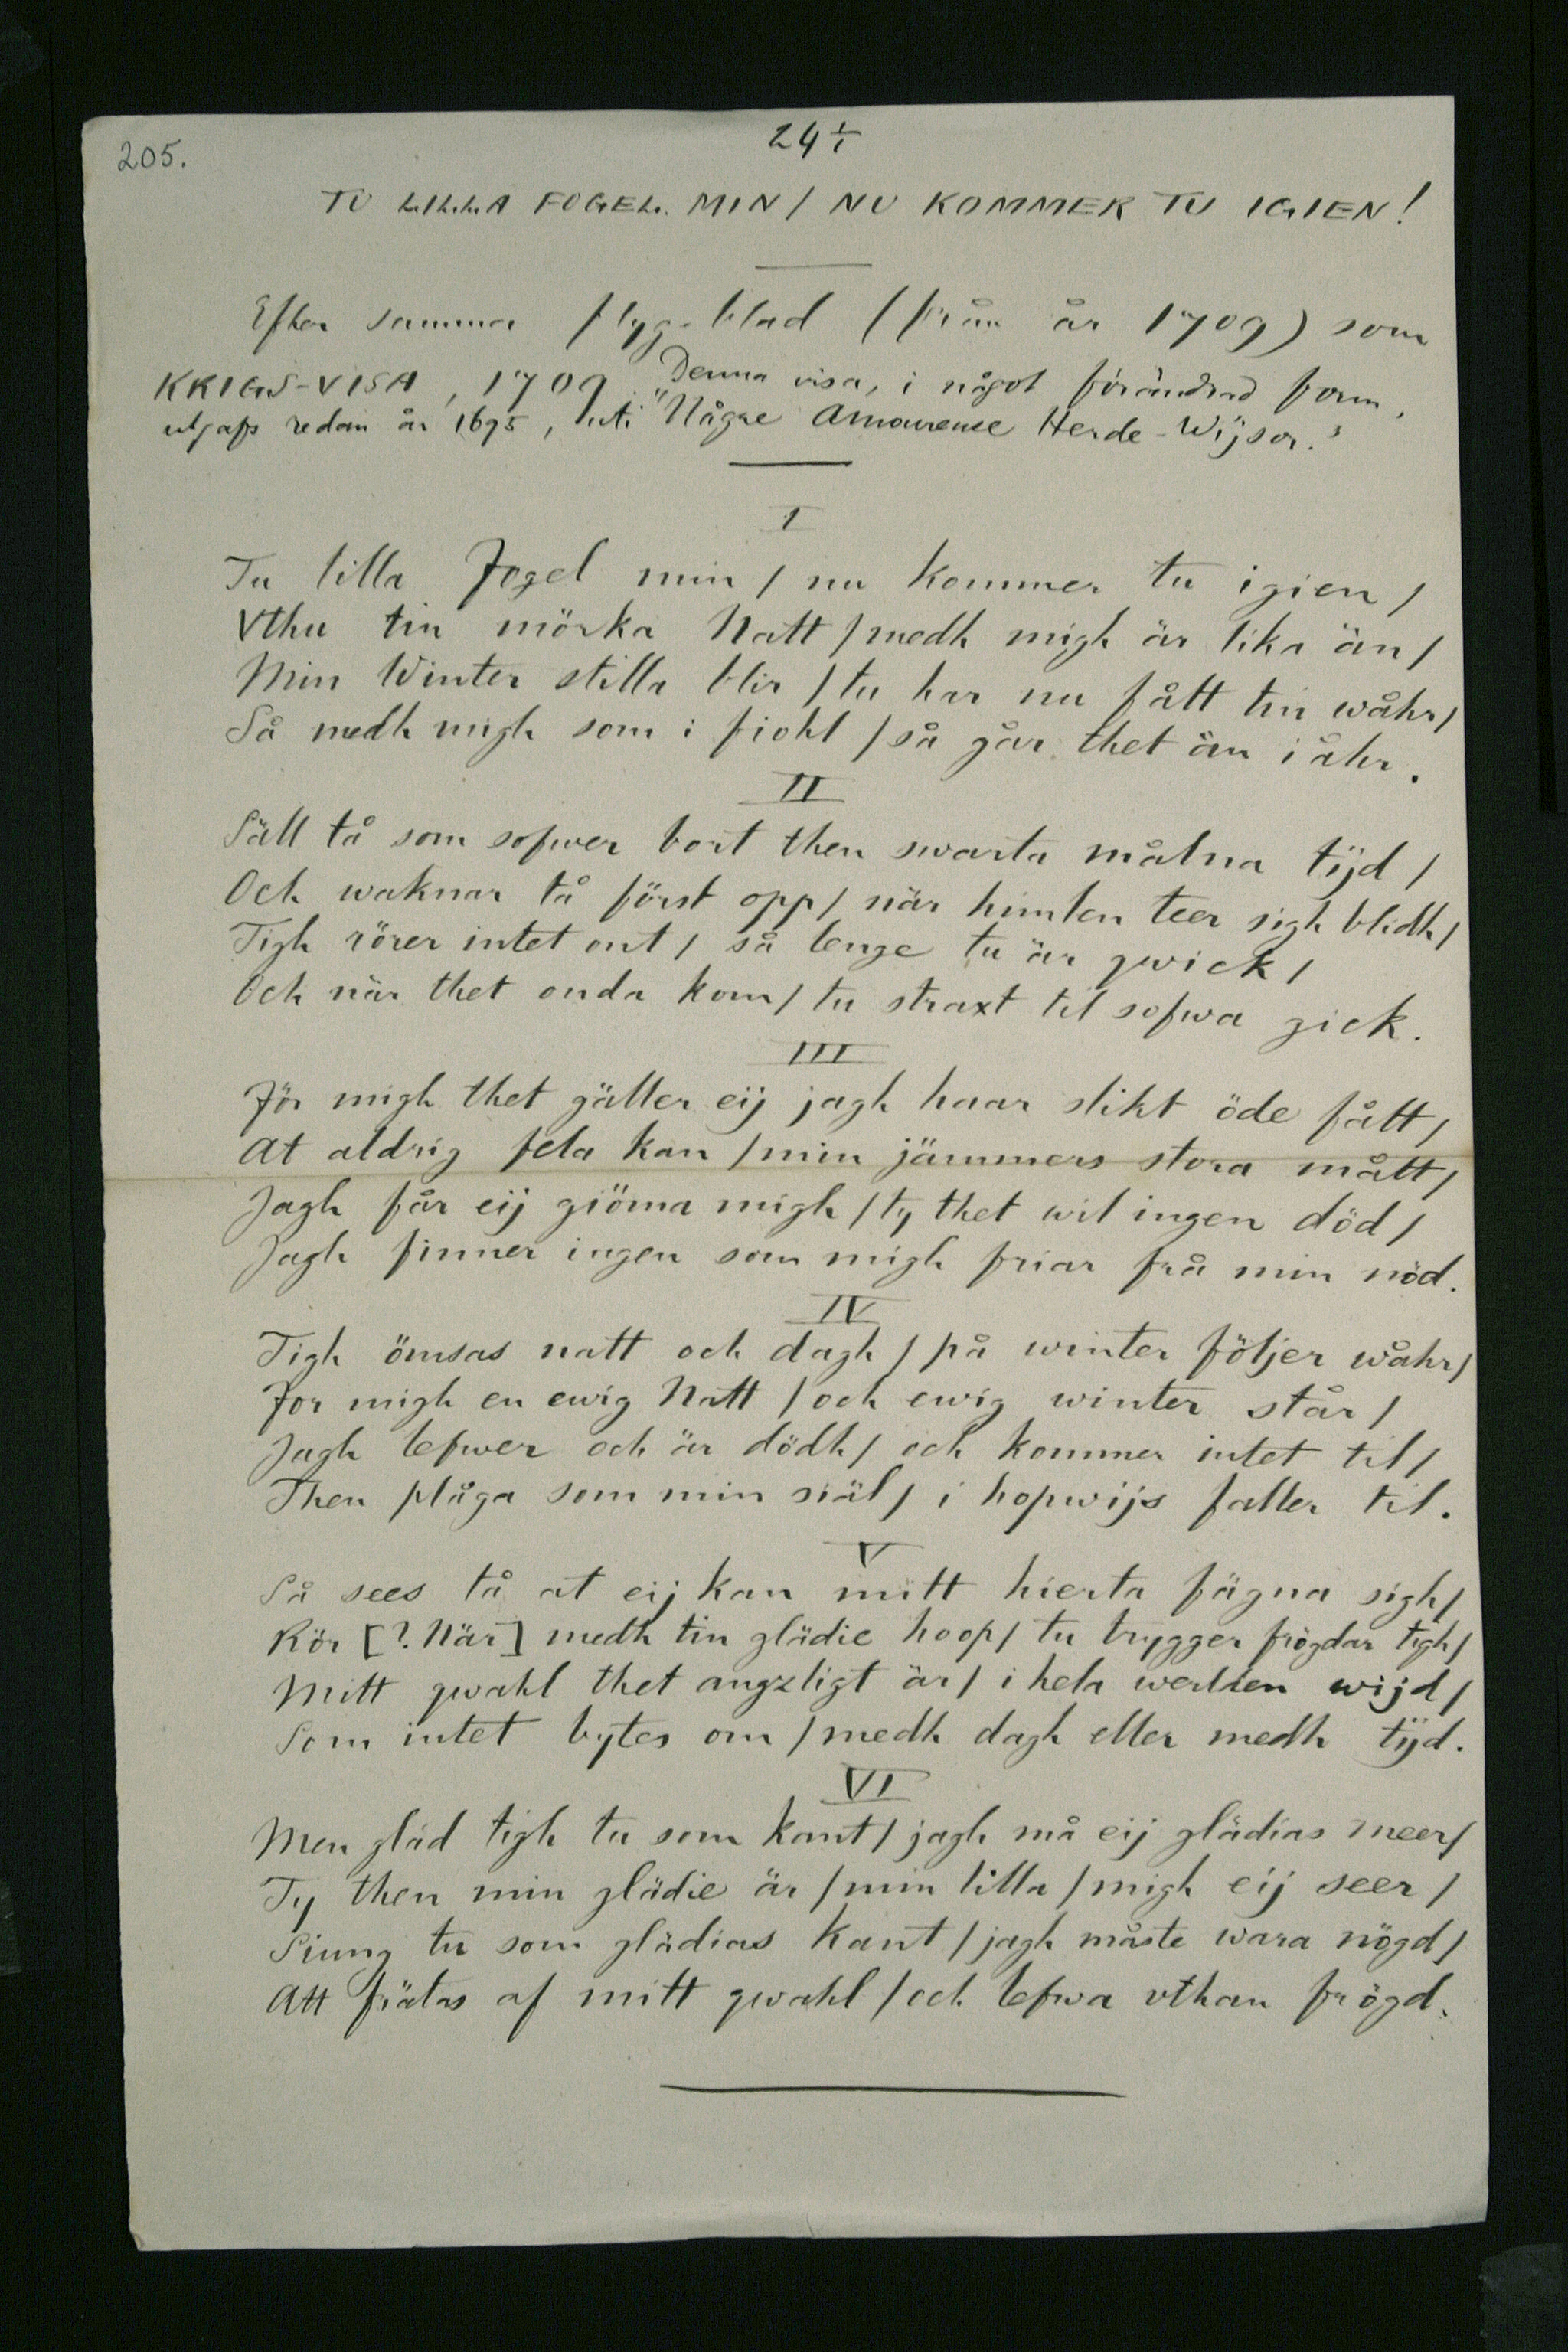 205.
24
TU LILLA FOGEL MIN / NU KOMMER TU IGIEN!
Efter samma flyg-blad (från år 1709) som
KRIGS-VISA, 1709. Denna visa, i något förändrad form,
utgafs redan år 1695, uti "Någre Amoureuse Herde-Wijsor."
I
Tu lilla Fogel min / nu kommer tu igien /
Vthu tin mörka Natt / medh migh är lika än /
Min Winter stilla blir / tu har nu fått tin wåhr /
Så medh migh som i fiohl / så går thet än i åhr.
II
Säll tå som sofwer bort then swarta målna tijd /
Och waknar tå först opp / när himlen teer sigh blidh /
Tigh rörer intet ont / så lenge tu är qwick /
Och när thet onda kom / tu straxt til sofwa gick.
III
För migh thet gäller eij jagh haar slikt öde fått /
At aldrig fela kan / min jämmers stora mått /
Jagh får eij giöma migh / ty thet wil ingen död /
Jagh finner ingen som migh friar frå min nöd.
IV
Tigh ömsas natt och dagh / på winter följer wåhr /
For migh en ewig Natt / och ewig winter står /
Jagh lefwer och är dödh / och kommer intet til /
Then plåga som min siäl / i hopwijs faller til.
V
Så sees tå at eij kan mitt hierta fägna sigh /
Kör [? När] medh tin glädie hoop / tu trygger frögdar tigh /
Mitt qwahl thet angzligt är / i hela werlden wijd /
Som intet bytes om / medh dagh eller medh tijd.
VI
Men gläd tigh tu som kant / jagh må eij glädias meer /
Ty then min glädie är / min lilla / migh eij seer /
Siung tu som glädias kant / jagh måste wara nögd /
Att frätas af mitt qwahl / och lefwa vthan frögd.